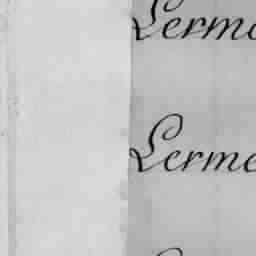 Lerm
Lerme